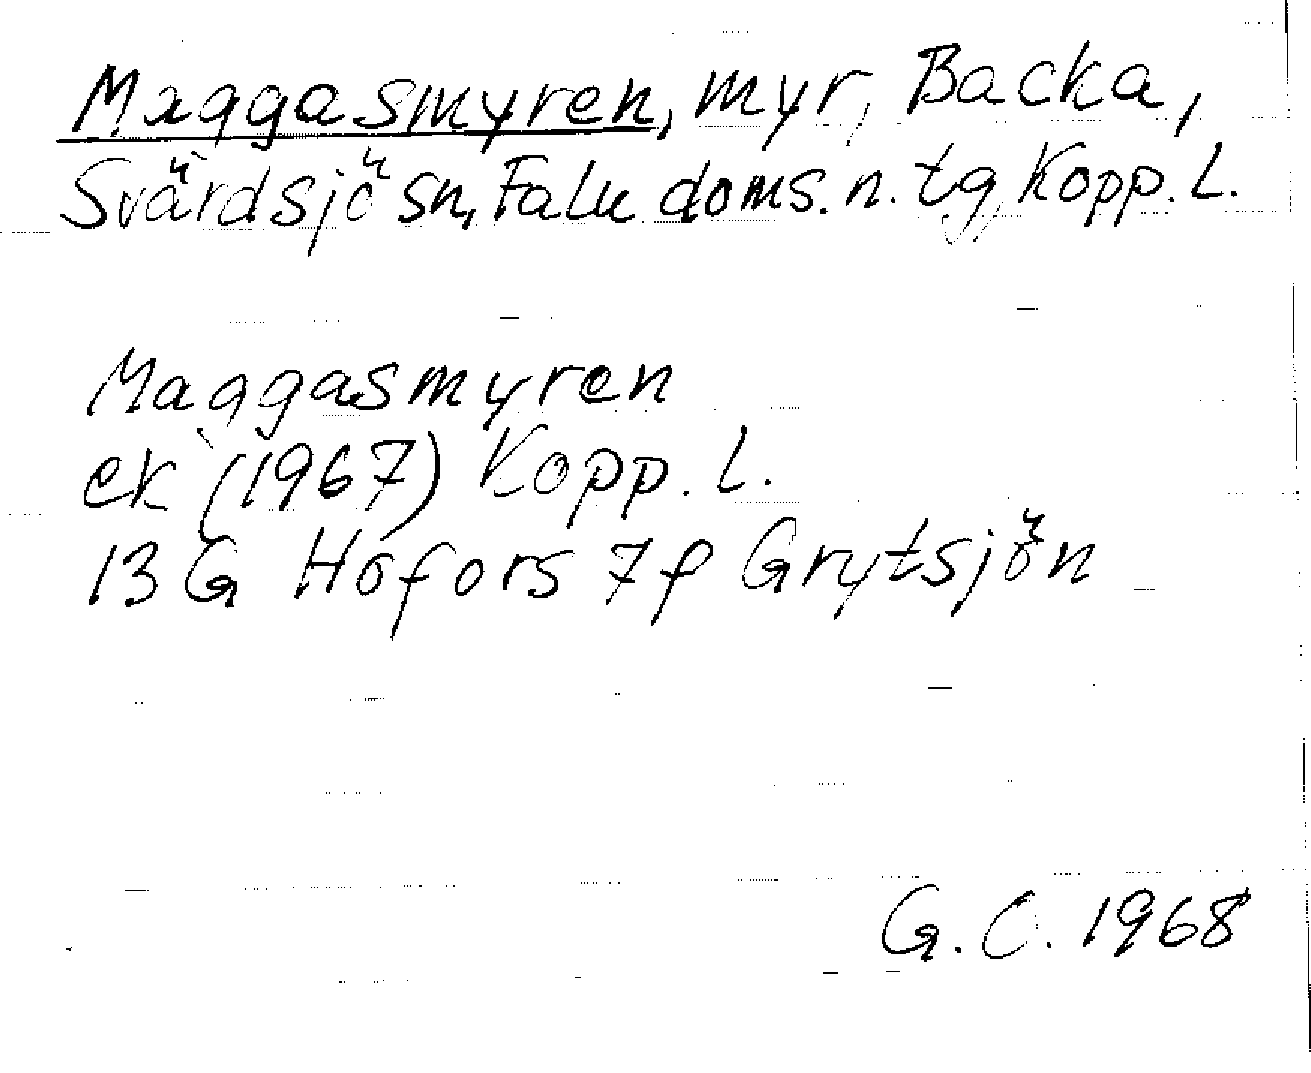 Maggasmyren, myr, Backa,
Svärdsjö sn, Falu doms. n. tg, Kopp. L.
Maggasmyren
ek (1967) Kopp. L.
13 G Hofors 7f Grytsjön
G. C. 1968